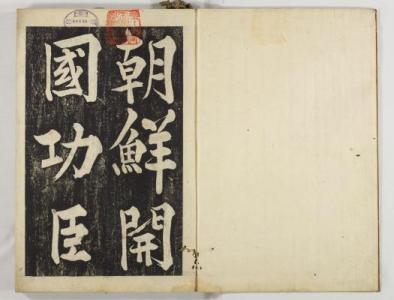 朝鮮開
國功臣